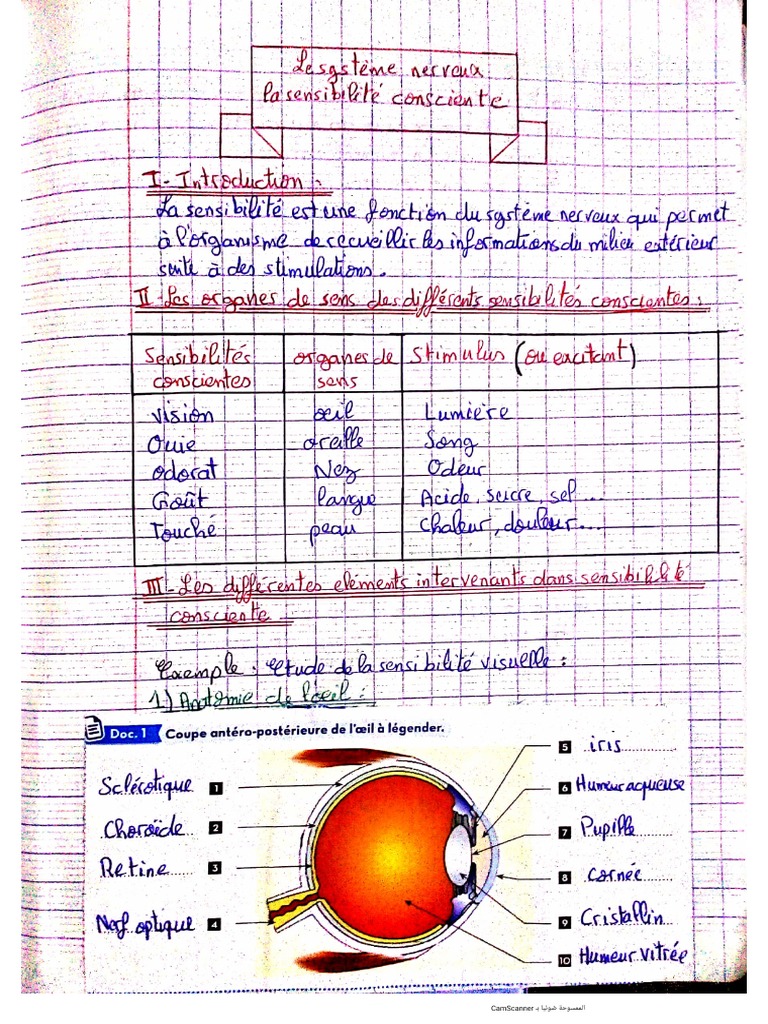 Le système nerveux
la sensibilité consciente
I - Introduction :
La sensibilité est une fonction du système nerveux qui permet
à l'organisme de recueillir les informations du milieu extérieur
suite à des stimulations.
II - Les organes de sens des différents sensibilités conscientes :
Sensibilités conscientes | organes de sens | Stimulus (ou excitant)
vision | œil | Lumière
Ouie | oreille | Song
odorat | Nez | Odeur
Goût | langue | Acide, sucre, sel...
Touché | peau | chaleur, douleur...
III - Les différentes elements intervenants dans sensibilité
consciente
Exemple : Etude de la sensibilité visuelle :
1.) Anatomie de l'œil :
Doc. 1 Coupe antéro-postérieure de l'œil à légender.
Sclérotique 1
Choroïde 2
Retine 3
Nerf optique 4
5 iris
6 Humeur aqueuse
7 Pupille
8 cornée
9 Cristallin
10 Humeur vitrée
الممسوحة ضوئيا بـ CamScanner